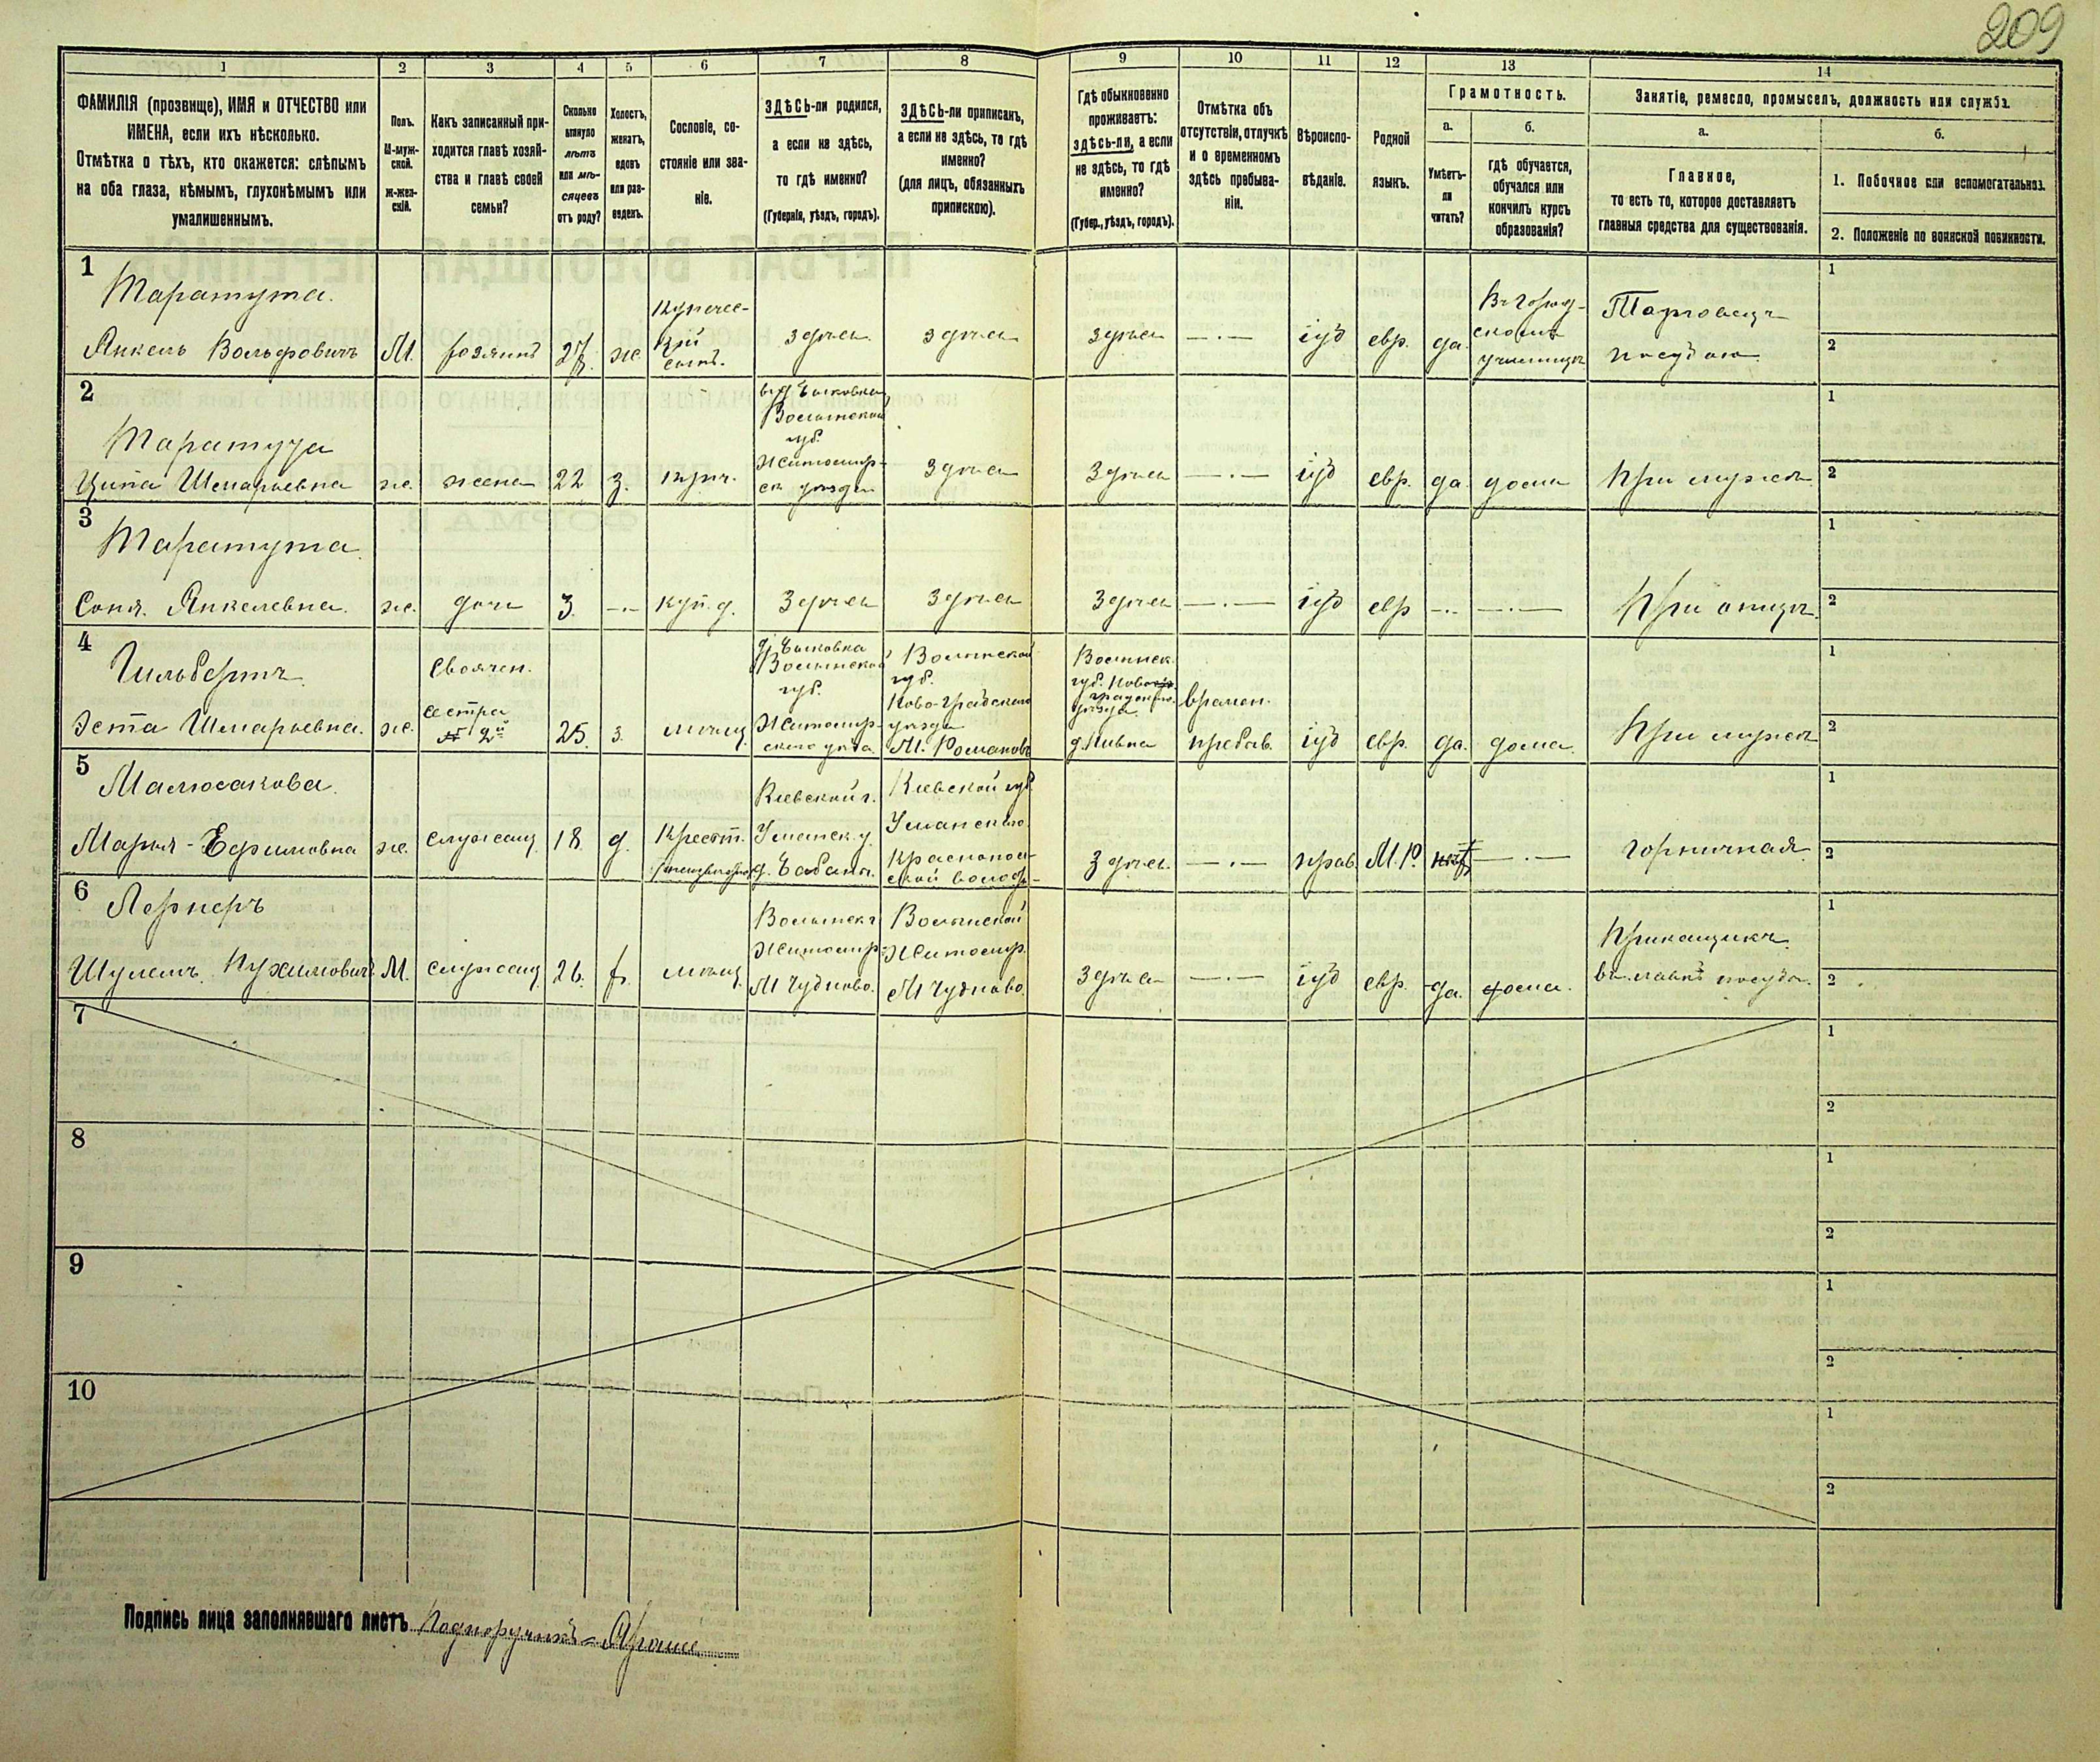 209
1 2 3 4 5 6 7 8 9 10 11 12 13 14
ФАМИЛІЯ (прозвище), ИМЯ и ОТЧЕСТВО или
ИМЕНА, если ихъ нѣсколько.
Отмѣтка о тѣхъ, кто окажется: слѣпымъ
на оба глаза, нѣмымъ, глухонѣмымъ или
умалишеннымъ.
Полъ.
М-муж-
ской.
Ж-жен-
скій.
Какъ записанный при-
ходится главѣ хозяй-
ства и главѣ своей
семьи?
Сколько
минуло
лѣтъ
или мѣ-
сяцевъ
отъ роду?
Холостъ,
женатъ,
вдовъ
или раз-
веденъ.
Сословіе, со-
стояніе или зва-
ніе.
ЗДѢСЬ-ли родился,
а если не здѣсь,
то гдѣ именно?
(Губернія, уѣздъ, городъ).
ЗДѢСЬ-ли приписанъ,
а если не здѣсь, то гдѣ
именно?
(для лицъ, обязанныхъ
припискою).
Гдѣ обыкновенно
проживаетъ:
здѣсь-ли, а если
не здѣсь, то гдѣ
именно?
(Губер., уѣздъ, городъ).
Отмѣтка объ
отсутствіи, отлучкѣ
и о временномъ
здѣсь пребыва-
ніи.
Вѣроиспо-
вѣданіе.
Родной
языкъ.
Грамотность.
а.
Умѣетъ-
ли
читать?
б.
гдѣ обучается,
обучался или
кончилъ курсъ
образованія?
Занятіе, ремесло, промыселъ, должность или служба.
а.
Главное,
то есть то, которое доставляетъ
главныя средства для существованія.
б.
1. Побочное или вспомогательное.
2. Положеніе по воинской повинности.
1
Таратута.
Янкель Вольфовичъ
М.
хозяинъ
27.
ж.
Купечес-
кій
сынъ.
здѣсь
здѣсь
здѣсь
— · —
іуд
евр.
да.
Въ Город-
скомъ
училищѣ
Торговецъ
посудою
1
2
2
Таратута
Ципа Шмарьевна
ж.
жена
22
з.
купч.
въ д. Быковка
Волынской
губ.
Житомир-
ск уѣзда
Здѣсь
Здѣсь
— · —
іуд
евр.
да.
дома
При мужѣ.
1
2
3
Таратута.
Соня. Янкелевна.
ж.
дочь
3.
— · —
куп. д.
Здѣсь
Здѣсь
Здѣсь
— · —
іуд
евр
— · —
— · —
При отцѣ.
1
2
4
Гильбертъ.
Эста Шмарьевна.
ж.
Своячен.
сестра
25.
з.
мѣщ.
д. Быковка
Волынской
губ.
Житомир-
скаго уѣзда
Волынской
губ.
Ново-градскаго
уѣзда
М. Романовъ
Волынск.
губ. Ново
уѣзда
времен.
пребыв.
іуд
евр.
да.
дома.
При мужѣ
1
2
5
Марья-Ефимовна
ж.
служащ.
18
д.
Крест.
Кіевской г.
Уманск. у.
д. Бабанъ.
Кіевской губ.
Уманскаго
Здѣсь.
— · —
прав.
М. Р.
нѣт
— · —
горничная.
1
2
6
Лернеръ
Шулемъ. Нухимовичъ.
М.
служащ.
26.
х.
мѣщ.
Волынск г
Житомир-
М Чудново.
Волынской
Житомир.
М Чудново.
Здѣсь
— · —
іуд
евр.
да.
дома.
Прикащикъ
въ лавкѣ посуды.
1
2
7
1
2
8
1
2
9
1
2
10
1
2
Подпись лица заполнявшаго листъ Подпоручикъ